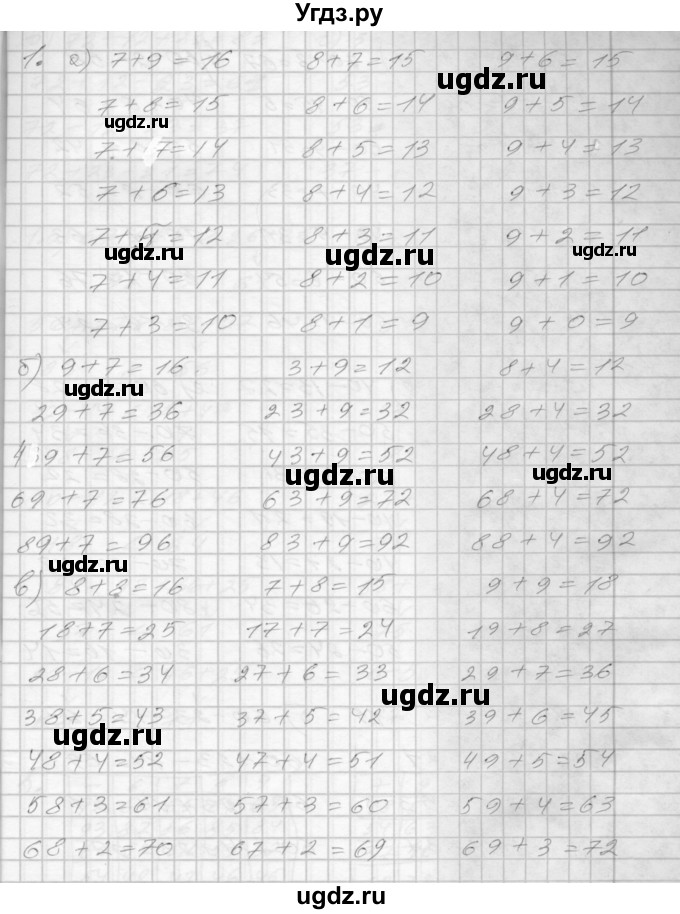 Угдз.ру
1. а) 7+9=16 8+7=15 9+6=15
ugdz.ru
7+8=15 8+6=14 9+5=14
ugdz.ru
7+7=14 8+5=13 9+4=13
7+6=13 8+4=12 9+3=12
7+5=12 8+3=11 9+2=11
ugdz.ru ugdz.ru ugdz.ru
7+4=11 8+2=10 9+1=10
7+3=10 8+1=9 9+0=9
б) 9+7=16 3+9=12 8+4=12
ugdz.ru
29+7=36 23+9=32 28+4=32
49+7=56 43+9=52 48+4=52
ugdz.ru ugdz.ru
69+7=76 63+9=72 68+4=72
89+7=96 83+9=92 88+4=92
ugdz.ru
в) 8+8=16 7+8=15 9+9=18
18+7=25 17+7=24 19+8=27
28+6=34 27+6=33 29+7=36
ugdz.ru
38+5=43 37+5=42 39+6=45
ugdz.ru
48+4=52 47+4=51 49+5=54
58+3=61 57+3=60 59+4=63
68+2=70 67+2=69 69+3=72
ugdz.ru